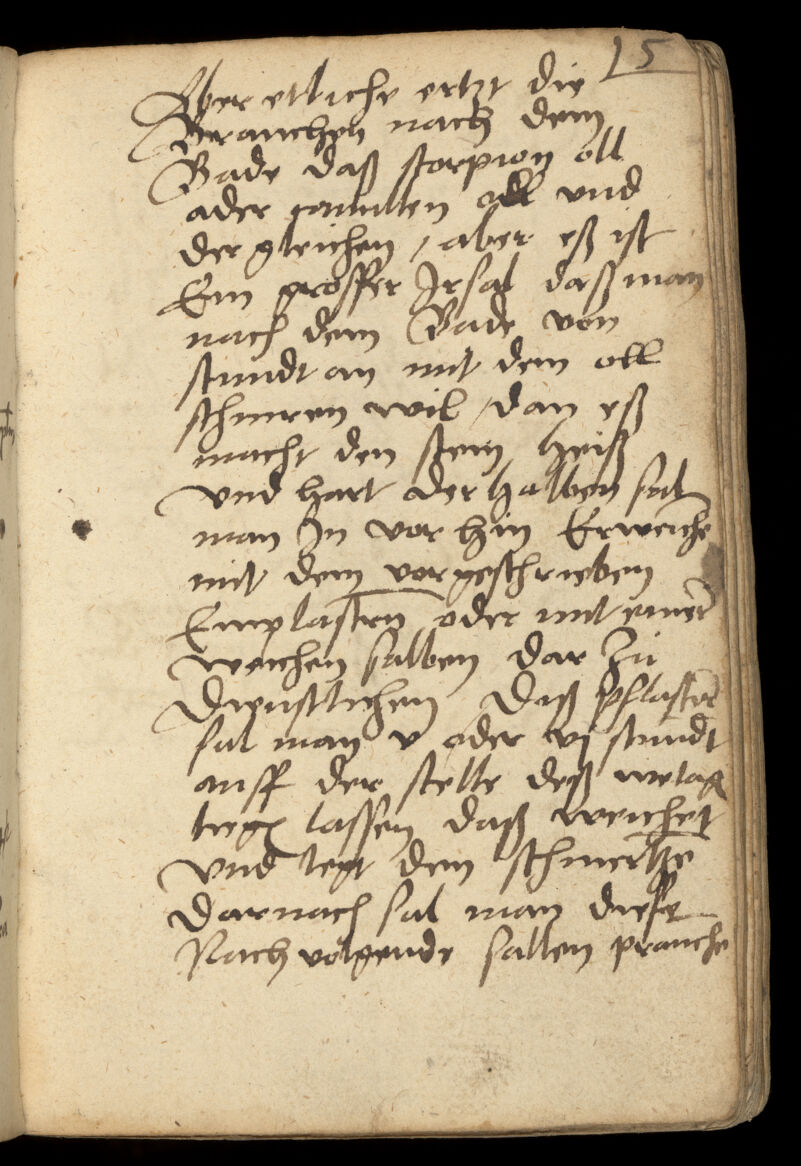 15
Aber etliche ertzt die
Brauchen nach dem
Bade daß scorpion oll
ader camillen oll und
der gleichen / aber eß ist
Ein grosser Irsal daß man
nach dem Bade von
stundt an mit dem oll
schmiren wil / dan eß
macht den stein heiß
vnd hart derhalben sal
man In vor hin Erweiche
mit dem vorgeschrieben
Emplastrn oder mit einer
weichen salben dar zu
Dienstlichen Daß pflaster
sal man v oder vj stundt
auff der stelle deß wetag
lassen daß weichet
vnd legt den schmertze
Darnach sal man diesse
Nach volgende salben prauche